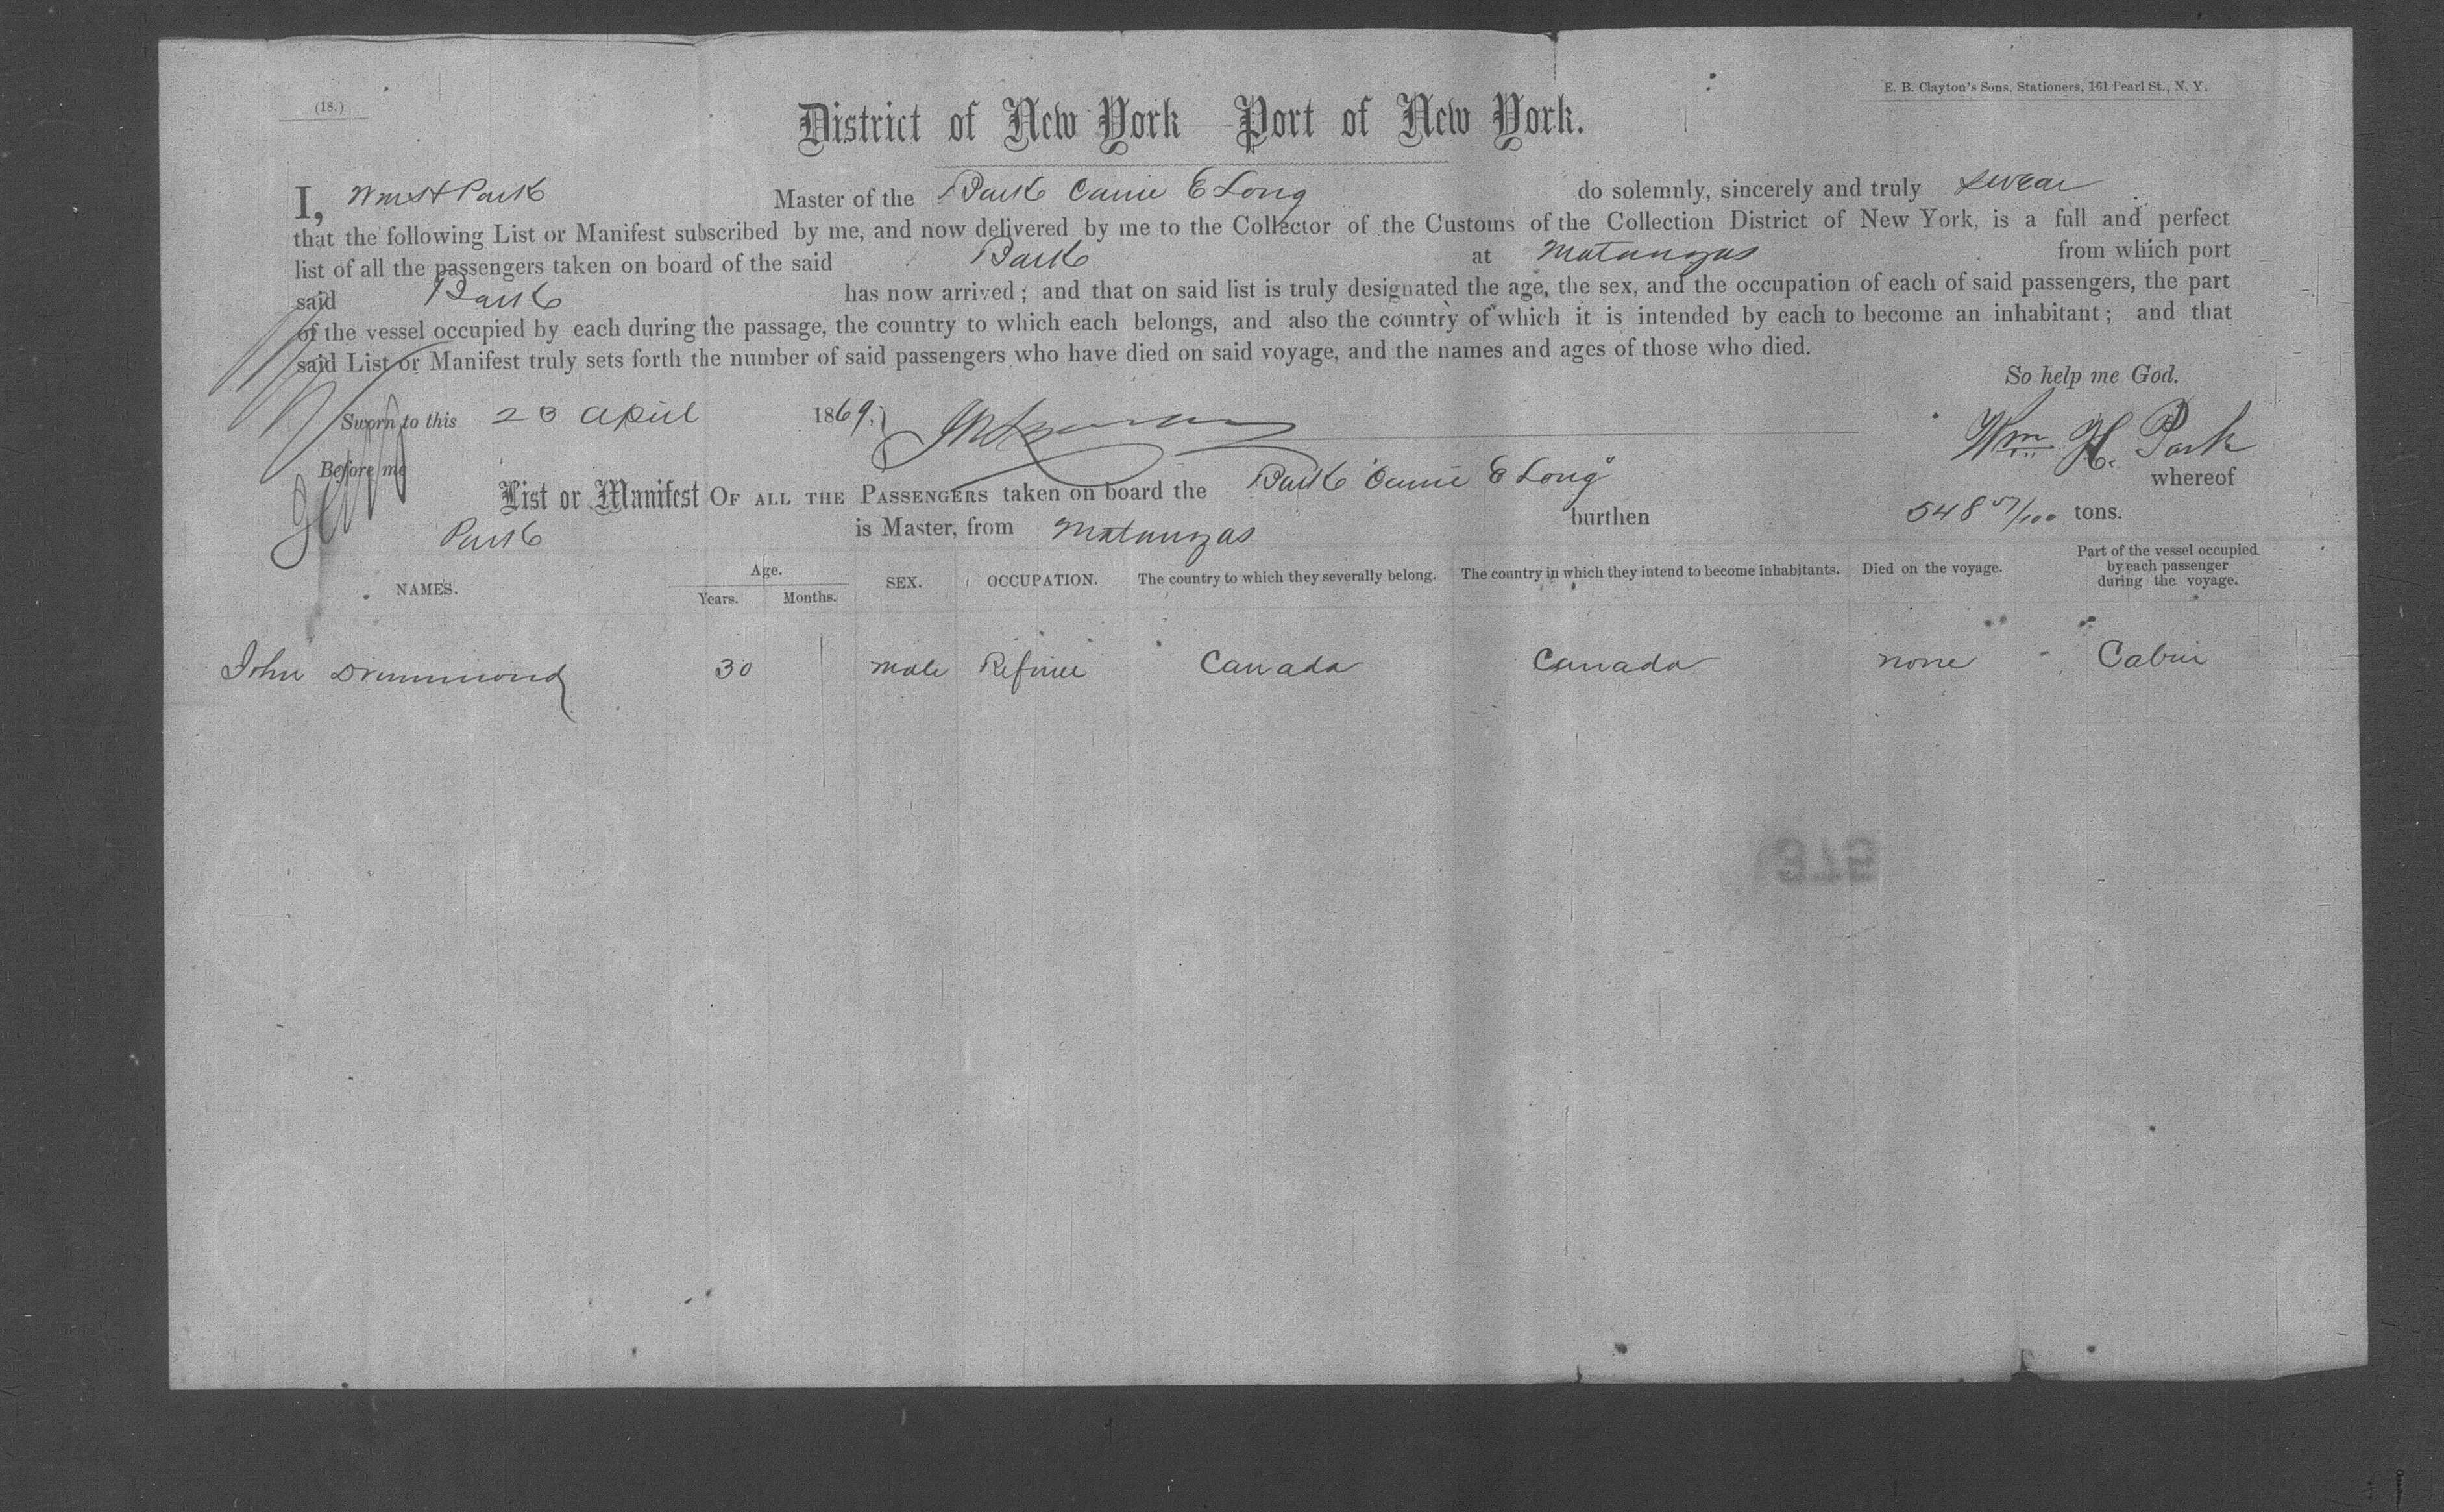 (18.)
E. B. Clayton's Sons, Stationers, 161 Pearl St., N. Y.
District of New York Port of New York.
I, Wm H Park Master of the Bark Carrie E Long do solemnly, sincerely and truly swear
that the following List or Manifest subscribed by me, and now delivered by me to the Collector of the Customs of the Collection District of New York, is a full and perfect
list of all the passengers taken on board of the said Bark at Matanzas from which port
said Bark has now arrived; and that on said list is truly designated the age, the sex, and the occupation of each of said passengers, the part
of the vessel occupied by each during the passage, the country to which each belongs, and also the country of which it is intended by each to become an inhabitant; and that
said List or Manifest truly sets forth the number of said passengers who have died on said voyage, and the names and ages of those who died.
So help me God.
Sworn to this 23 April 1869.
Wm. H. Park
Before me
List or Manifest OF ALL THE PASSENGERS taken on board the Bark "Carrie E Long" whereof
Park is Master, from Matanzas burthen 548 57/100 tons.
NAMES. Age. Years. Months. SEX. OCCUPATION. The country to which they severally belong. The country in which they intend to become inhabitants. Died on the voyage. Part of the vessel occupied by each passenger during the voyage.
John Drummond 30 male Refiner Canada Canada none Cabin
575